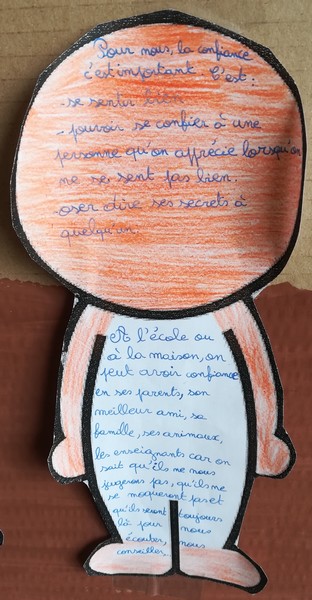 Pour nous, la confiance
c'est important. C'est :
- se sentir bien.
- pouvoir se confier à une
personne qu'on apprécie lorsqu'on
ne se sent pas bien.
- oser dire ses secrets à
quelqu'un.
A l'école ou
à la maison, on
peut avoir confiance
en ses parents, son
meilleur ami, sa
famille, ses animaux,
les enseignants car on
sait qu'ils ne nous
jugerons pas, qu'ils ne
se moqueront pas et
qu'ils seront toujours
là pour nous
écouter, nous
conseiller